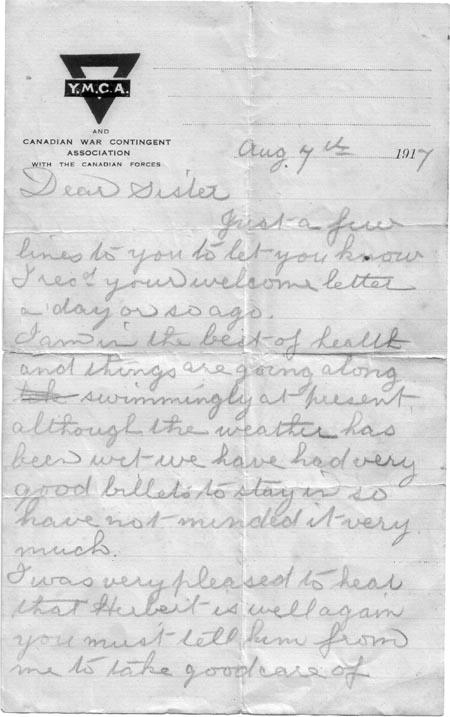 Y.M.C.A.
AND
CANADIAN WAR CONTINGENT
ASSOCIATION
WITH THE CANADIAN FORCES
Aug. 7th 1917
Dear Sister
Just a few
lines to you to let you know
I recd your welcome letter
a day or so ago.
I am in the best of health
and things are going along
swimmingly at present
although the weather has
been wet we have had very
good billets to stay in so
have not minded it very
much.
I was very pleased to hear
that Herbert is well again
you must tell him from
me to take good care of